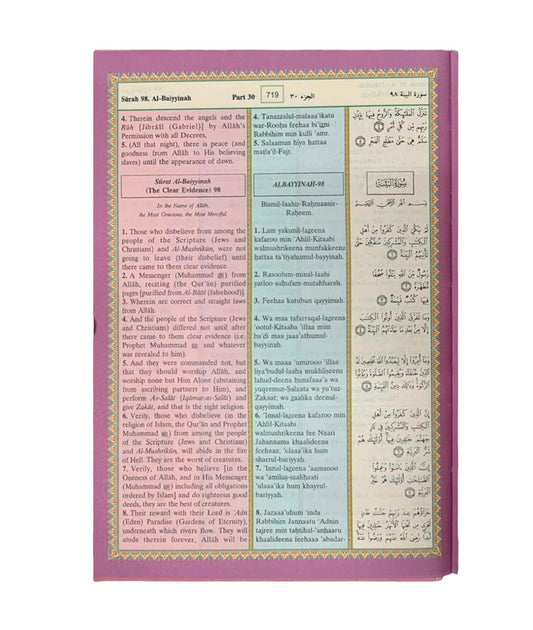 Sûrah 98. Al-Baiyyinah Part 30 719 الجزء ٣٠ سورة البينة ٩٨
4. Therein descend the angels and the
Rûh [Jibrâîl (Gabriel)] by Allâh's
Permission with all Decrees,
5. (All that night), there is peace (and
goodness from Allâh to His believing
slaves) until the appearance of dawn.
Sûrat Al-Baiyyinah
(The Clear Evidence) 98
In the Name of Allâh,
the Most Gracious, the Most Merciful.
1. Those who disbelieve from among the
people of the Scripture (Jews and
Christians) and Al-Mushrikûn, were not
going to leave (their disbelief) until
there came to them clear evidence.
2. A Messenger (Muhammad ﷺ) from
Allâh, reciting (the Qur'ân) purified
pages [purified from Al-Bâtil (falsehood)].
3. Wherein are correct and straight laws
from Allâh.
4. And the people of the Scripture (Jews
and Christians) differed not until after
there came to them clear evidence (i.e.
Prophet Muhammad ﷺ and whatever
was revealed to him).
5. And they were commanded not, but
that they should worship Allâh, and
worship none but Him Alone (abstaining
from ascribing partners to Him), and
perform As-Salât (Iqâmat-as-Salât) and
give Zakât, and that is the right religion.
6. Verily, those who disbelieve (in the
religion of Islam, the Qur'ân and Prophet
Muhammad ﷺ) from among the people
of the Scripture (Jews and Christians)
and Al-Mushrikûn, will abide in the fire
of Hell. They are the worst of creatures.
7. Verily, those who believe [in the
Oneness of Allâh, and in His Messenger
(Muhammad ﷺ) including all obligations
ordered by Islam] and do righteous good
deeds, they are the best of creatures.
8. Their reward with their Lord is 'Adn
(Eden) Paradise (Gardens of Eternity),
underneath which rivers flow. They will
abide therein forever, Allâh will be
4. Tanazzalul-malaaa'ikatu
war-Roohu feehaa bi'igni
Rabbihim min kulli 'amr.
5. Salaamun hiya hattaa
matla'il-Fajr.
ALBAYYINAH-98
Bismil-laahir-Rahmaanir-
Raheem.
1. Lam yakunil-lageena
kafaroo min 'Ahlil-Kitaabi
walmushrikeena munfakkeena
hattaa ta'tiyahumul-bayyinah.
2. Rasoolum-minal-laahi
yatloo suhufam-mutahharah.
3. Feehaa kutubun qayyimah.
4. Wa maa tafarraqal-lageena
'ootul-Kitaaba 'illaa mim
ba'di maa jaaa'athumul-
bayyinah.
5. Wa maaa 'umirooo 'illaa
liya'budul-laaha mukhliseena
lahud-deena hunafaaa'a wa
yuqeemus-Salaata wa yu'tuz-
Zakaat; wa zaalika deenul-
qayyimah.
6. 'Innal-lageena kafaroo min
'Ahlil-Kitaabi
walmushrikeena fee Naari
Jahannama khaalideena
feehaa; 'ulaaa'ika hum
sharrul-bariyyah.
7. 'Innal-lageena 'aamanoo
wa 'amilus-saalihaati
'ulaaa'ika hum khayrul-
bariyyah.
8. Jazaaa'uhum 'inda
Rabbihim Jannaatu 'Adnin
tajree min tahtihal-'anhaaru
khaalideena feehaaa 'abadar-
تَنَزَّلُ الْمَلَٰٓئِكَةُ وَالرُّوحُ فِيهَا بِإِذْنِ
رَبِّهِم مِّن كُلِّ أَمْرٍ
سَلَٰمٌ هِىَ حَتَّىٰ مَطْلَعِ الْفَجْرِ
سُورَةُ الْبَيِّنَةِ
بِسْمِ اللَّهِ الرَّحْمَٰنِ الرَّحِيمِ
لَمْ يَكُنِ الَّذِينَ كَفَرُوا مِنْ أَهْلِ
الْكِتَٰبِ وَالْمُشْرِكِينَ مُنفَكِّينَ حَتَّىٰ
تَأْتِيَهُمُ الْبَيِّنَةُ
رَسُولٌ مِّنَ اللَّهِ يَتْلُوا صُحُفًا
مُّطَهَّرَةً
فِيهَا كُتُبٌ قَيِّمَةٌ
وَمَا تَفَرَّقَ الَّذِينَ أُوتُوا الْكِتَٰبَ
إِلَّا مِنۢ بَعْدِ مَا جَآءَتْهُمُ الْبَيِّنَةُ